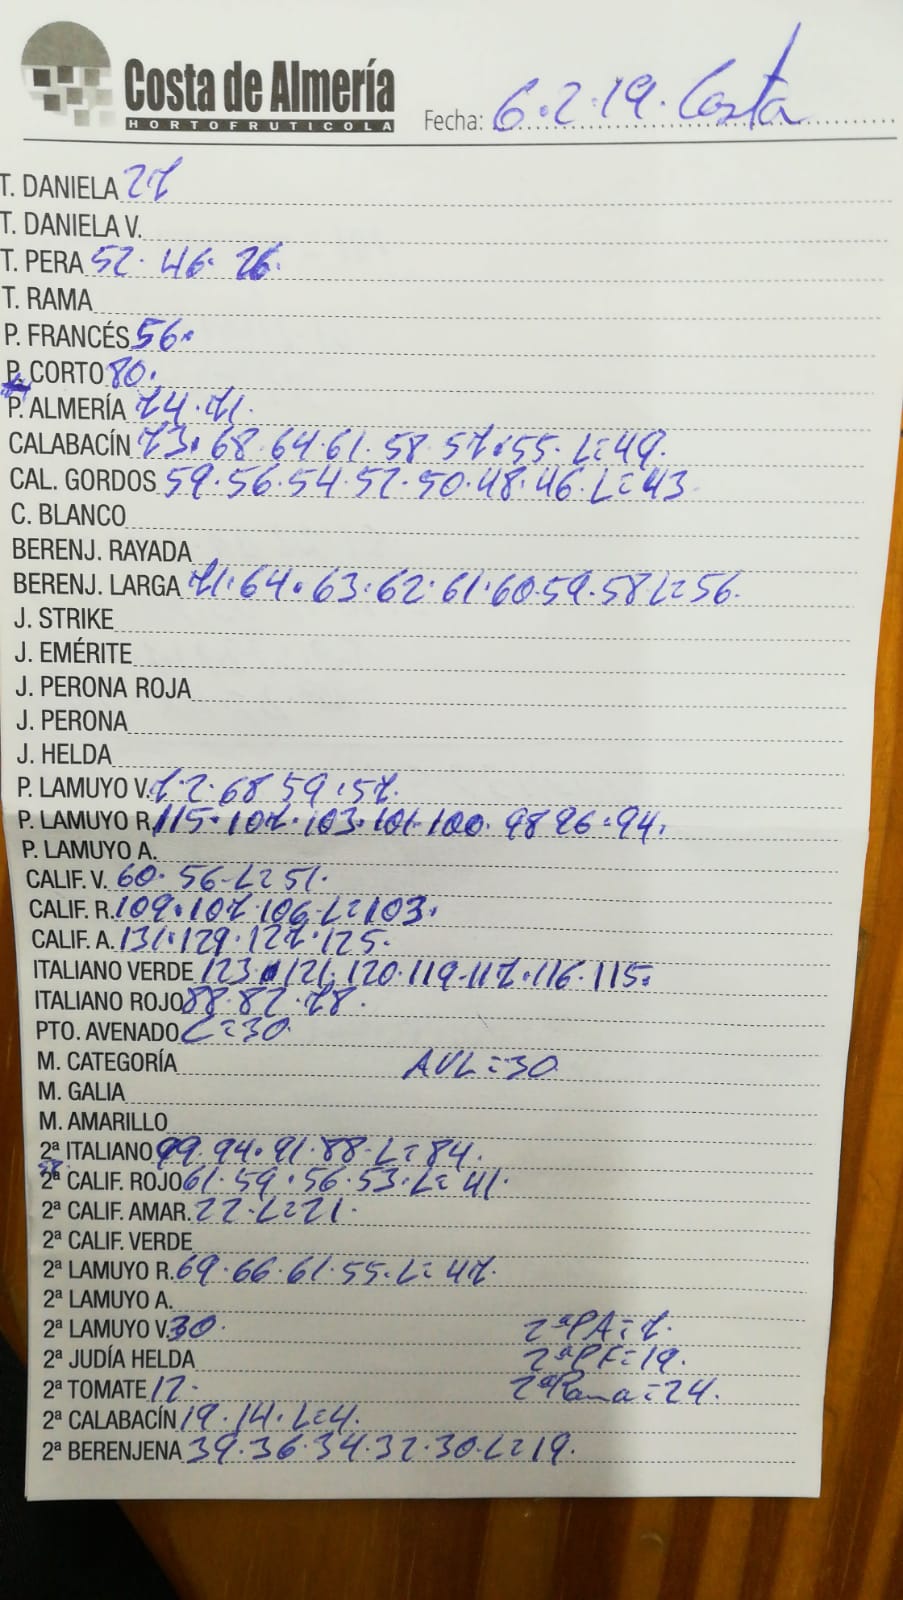 Costa de Almería
HORTOFRUTICOLA
Fecha: 6.2.19. Costa
T. DANIELA 27
T. DANIELA V.
T. PERA 52. 46. 26.
T. RAMA
P. FRANCÉS 56.
P. CORTO 80.
P. ALMERÍA 74.71.
CALABACÍN 73.68.64.61.58.57.55.L=49.
CAL. GORDOS 59.56.54.52.50.48.46.L=43
C. BLANCO
BERENJ. RAYADA
BERENJ. LARGA 71.64.63.62.61.60.59.58 L=56.
J. STRIKE
J. EMÉRITE
J. PERONA ROJA
J. PERONA
J. HELDA
P. LAMUYO V. 7.2.68 59.57.
P. LAMUYO R. 115.107.103.101.100. 98 96.94.
P. LAMUYO A.
CALIF. V. 60. 56.L=51.
CALIF. R. 109.107.106.L=103.
CALIF. A. 131.129.127.125.
ITALIANO VERDE 123.121.120.119.117.116.115.
ITALIANO ROJO 88.82.78.
PTO. AVENADO L=30
M. CATEGORÍA AVL=30
M. GALIA
M. AMARILLO
2ª ITALIANO 99.94.91.88.L=84.
2ª CALIF. ROJO 61.59.56.53.L=41.
2ª CALIF. AMAR. 22.L=21.
2ª CALIF. VERDE
2ª LAMUYO R. 69.66.61.55.L=47.
2ª LAMUYO A.
2ª LAMUYO V. 30. 2ªPA=7.
2ª JUDÍA HELDA 2ªPF=19.
2ª TOMATE 12. 2ªRama=24.
2ª CALABACÍN 19.14.L=4.
2ª BERENJENA 39.36.34.32.30.L=19.